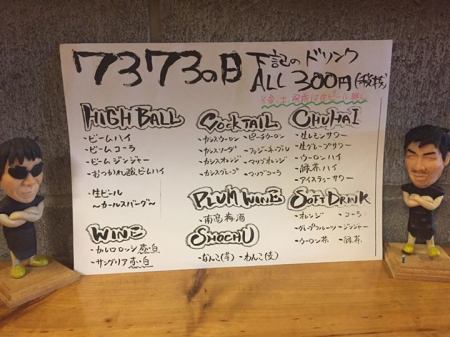 7373の日
下記のドリンク
ALL 300円(税抜)
HIGH BALL
・ビームハイ
・ビームコーラ
・ビームジンジャー
・おつかれ酸ビームハイ
・生ビール
〜カールスバーグ〜
WINE
・カルロロッシ 赤・白
・サングリア 赤・白
COCKTAIL
・カシスウーロン ・ピーチウーロン
・カシスソーダ ・ファジーネーブル
・カシスオレンジ
PLUM WINE
・南高梅酒
SHOCHU
・なんこ(芋) ・わんこ(麦)
CHUHAI
・生レモンサワー
・生グレープサワー
・ウーロンハイ
・緑茶ハイ
・アイスティーサワー
SOFT DRINK
・オレンジ ・コーラ
・グレープフルーツ ・ジンジャー
・ウーロン茶 ・緑茶